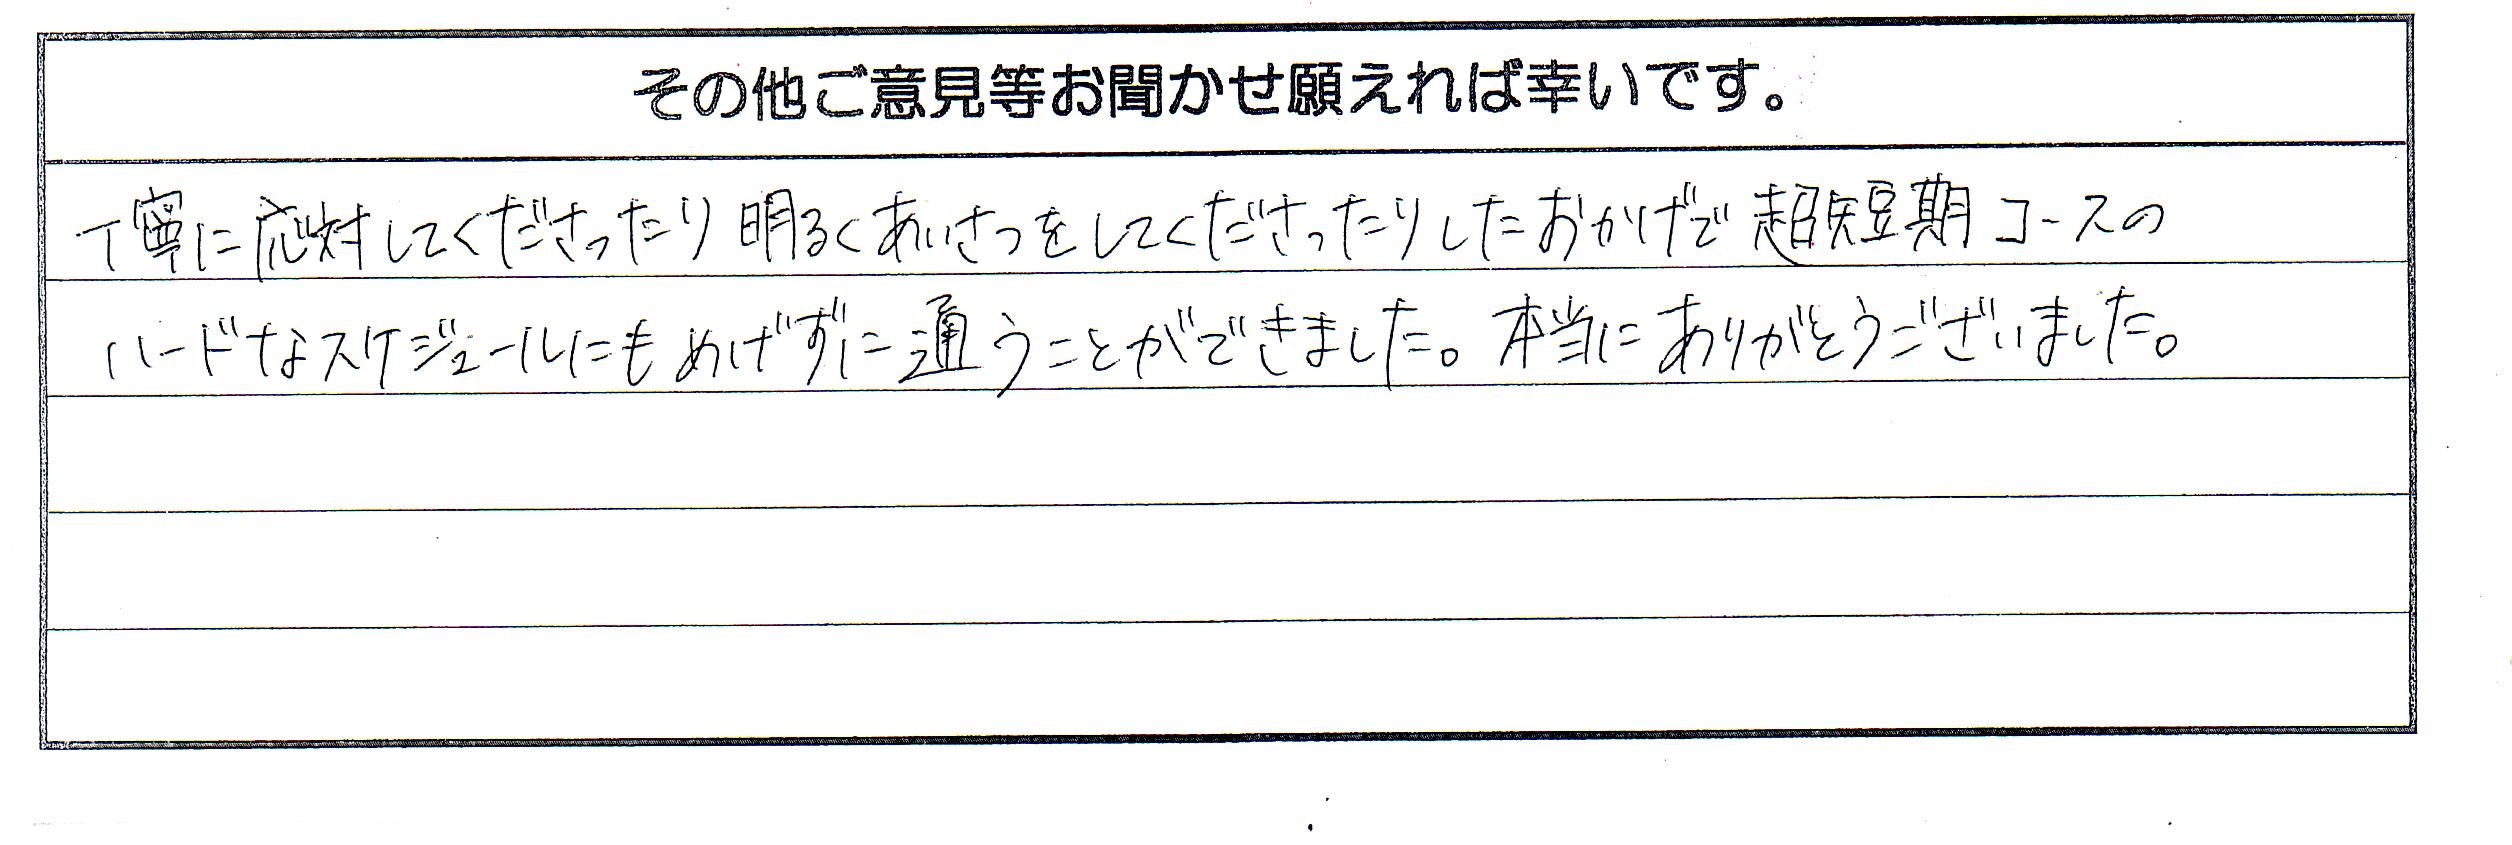 その他ご意見等お聞かせ願えれば幸いです。
丁寧に応対してくださったり明るくあいさつをしてくださったりしたおかげで超短期コースの
ハードなスケジュールにもめげずに通うことができました。本当にありがとうございました。